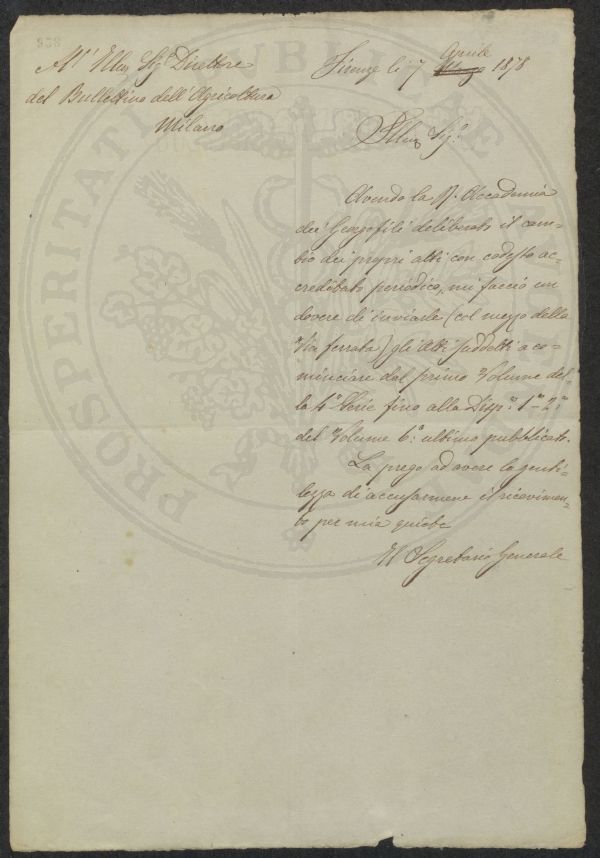 All' Illmo Sigr Direttore
del Bullettino dell' Agricoltura
Milano
Firenze li 7 Aprile 1878
Illmo Sigr
Avendo la R. Accademia
dei Georgofili deliberato il cam-
bio dei propri atti con codesto ac-
creditato periodico, mi faccio un
dovere di inviarle (col mezzo della
Via ferrata) gli Atti suddetti a co-
minciare dal primo Volume del-
la 4a Serie fino alla Disp. 1a-2a
del Volume 6o ultimo pubblicato.
La prego ad avere la genti-
lezza di accusarmene il ricevimen-
to per mia quiete
Il Segretario Generale
PROSPERITATI PUBLICAE